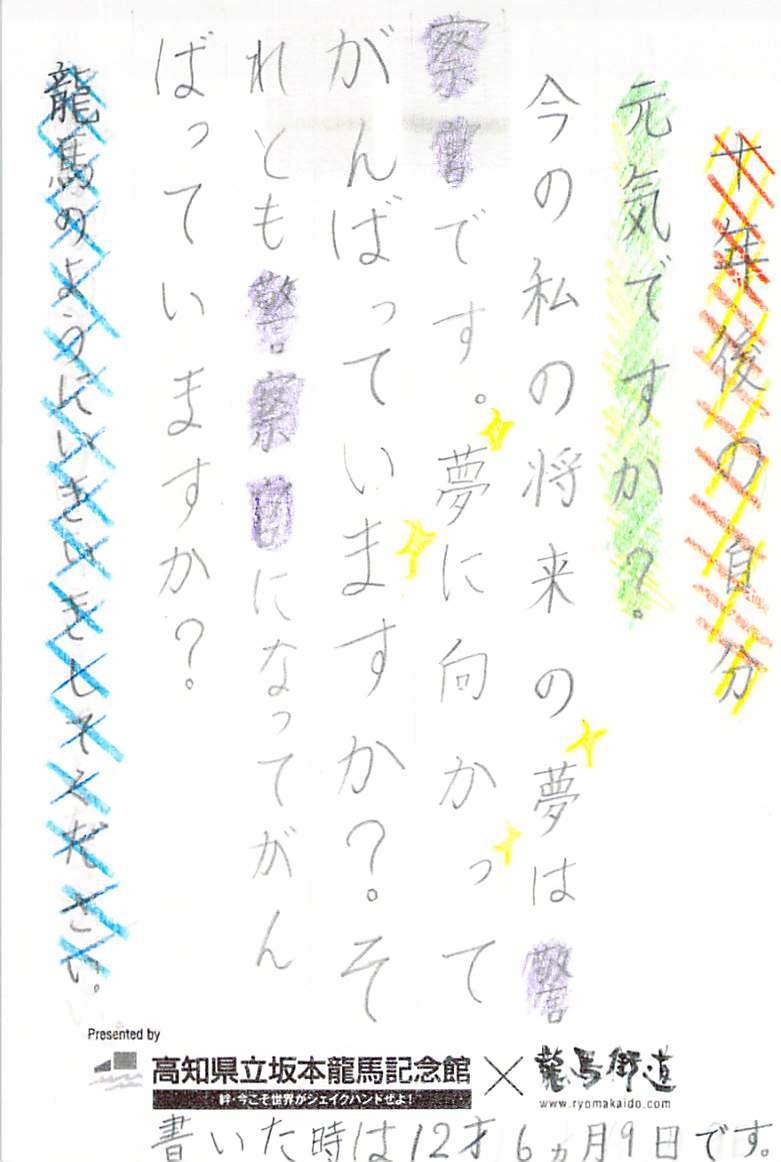 十年後の自分
元気ですか？
今の私の将来の夢は警
察官です。夢に向かって
がんばっていますか？。そ
れとも警察官になってがん
ばっていますか？。
龍馬のようにいきいきしてください。
Presented by
高知県立坂本龍馬記念館×龍馬街道
絆・今こそ世界がシェイクハンドぜよ！
www.ryomakaido.com
書いた時は12才6ヵ月9日です。